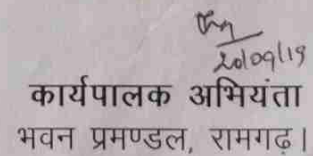 20/09/19
कार्यपालक अभियंता
भवन प्रमण्डल, रामगढ़।